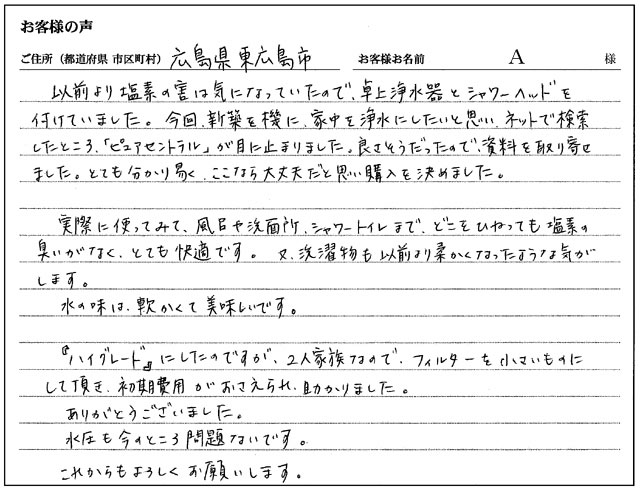 お客様の声
ご住所（都道府県 市区町村） 広島県東広島市 お客様お名前 A 様
以前より塩素の害は気になっていたので、卓上浄水器とシャワーヘッドを
付けていました。今回、新築を機に、家中を浄水にしたいと思い、ネットで検索
したところ、「ピュアセントラル」が目に止まりました。良さそうだったので、資料を取り寄せ
ました。とても分かり易く、ここなら大丈夫だと思い購入を決めました。
実際に使ってみて、風呂や洗面所、シャワートイレまで、どこをひねっても塩素の
臭いがなく、とても快適です。又、洗濯物も以前より柔かくなったような気が
します。
水の味は、軟かくて美味しいです。
『ハイグレード』にしたのですが、2人家族なので、フィルターを小さいものに
して頂き、初期費用がおさえられ、助かりました。
ありがとうございました。
水圧も今のところ問題ないです。
これからもよろしくお願いします。